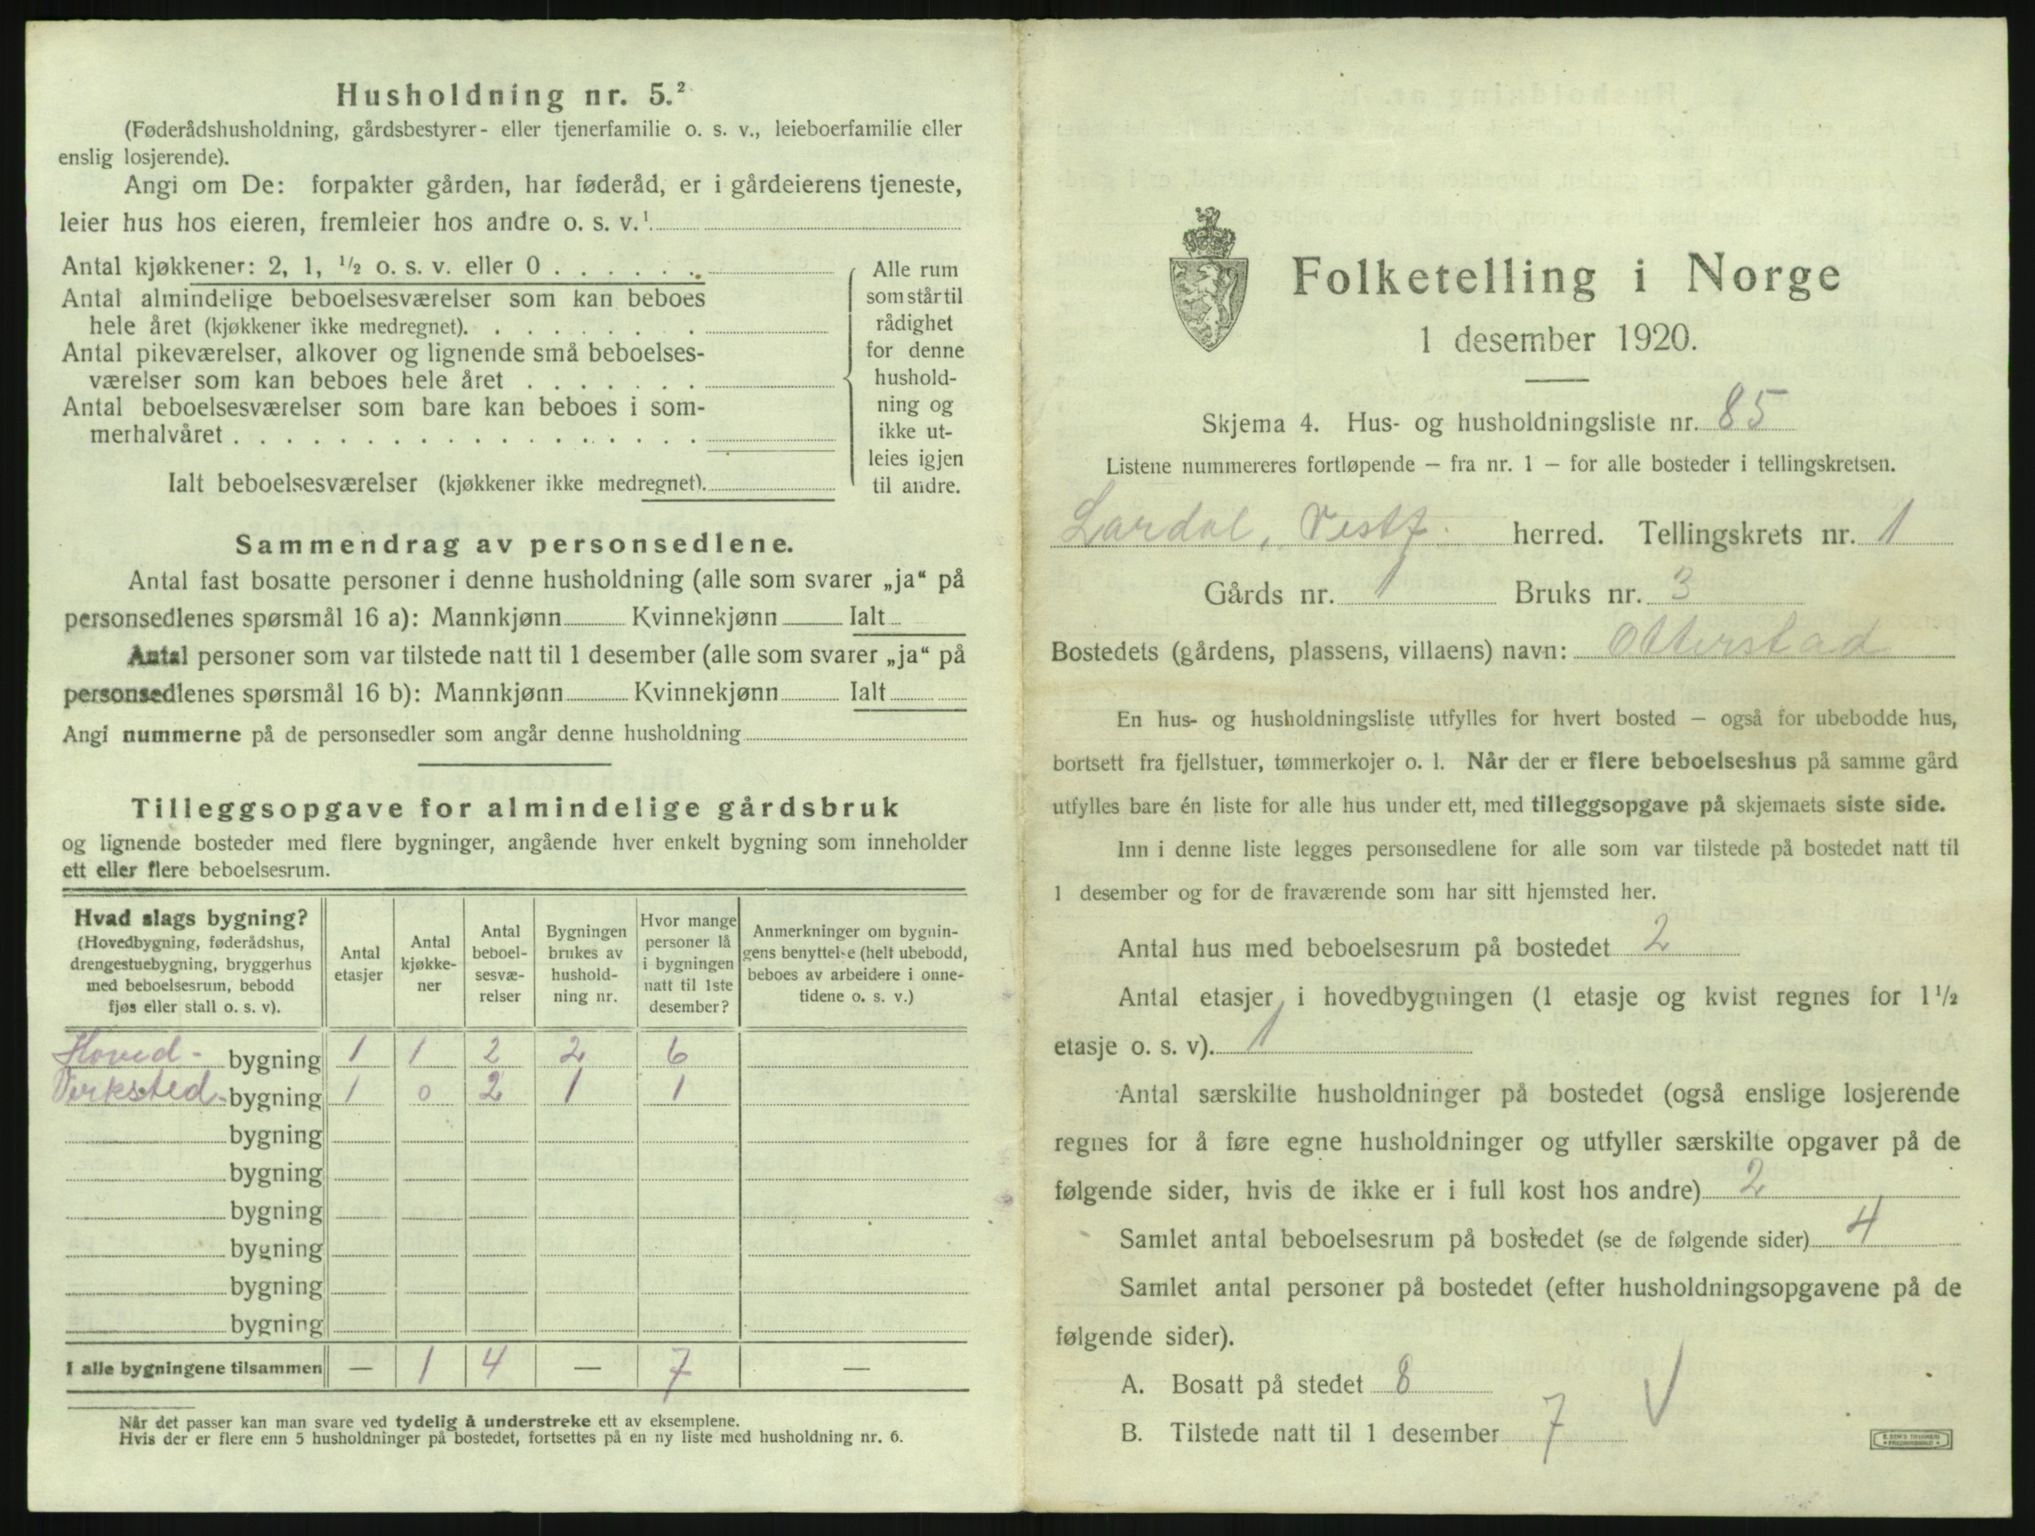 Husholdning nr. 5.²
(Føderådshusholdning, gårdsbestyrer- eller tjenerfamilie o. s. v., leieboerfamilie eller
enslig losjerende).
Angi om De: forpakter gården, har føderåd, er i gårdeierens tjeneste,
leier hus hos eieren, fremleier hos andre o. s. v.¹
Antal kjøkkener: 2, 1, ½ o. s. v. eller 0 . . . . . .
Antal almindelige beboelsesværelser som kan beboes
hele året (kjøkkener ikke medregnet). . . . . . . .
Antal pikeværelser, alkover og lignende små beboelses-
værelser som kan beboes hele året . . . . . . .
Antal beboelsesværelser som bare kan beboes i som-
merhalvåret . . . . . . . . . . . . . . . . . .
Ialt beboelsesværelser (kjøkkener ikke medregnet).
Alle rum
som står til
rådighet
for denne
hushold-
ning og
ikke ut-
leies igjen
til andre.
Sammendrag av personsedlene.
Antal fast bosatte personer i denne husholdning (alle som svarer „ja“ på
personsedlenes spørsmål 16 a): Mannkjønn Kvinnekjønn Ialt
Antal personer som var tilstede natt til 1 desember (alle som svarer „ja“ på
personsedlenes spørsmål 16 b): Mannkjønn Kvinnekjønn Ialt
Angi nummerne på de personsedler som angår denne husholdning
Tilleggsopgave for almindelige gårdsbruk
og lignende bosteder med flere bygninger, angående hver enkelt bygning som inneholder
ett eller flere beboelsesrum.
Hvad slags bygning?
(Hovedbygning, føderådshus,
drengestuebygning, bryggerhus
med beboelsesrum, bebodd
fjøs eller stall o. s. v).
Antal
etasjer
Antal
kjøkke-
ner
Antal
beboel-
sesvæ-
relser
Bygningen
brukes av
hushold-
ning nr.
Hvor mange
personer lå
i bygningen
natt til 1ste
desember?
Anmerkninger om bygnin-
gens benyttelse (helt ubebodd,
beboes av arbeidere i onne-
tidene o. s. v.)
Hoved- bygning 1 1 2 2 6
Verksted- bygning 1 0 2 1 1
bygning
bygning
bygning
bygning
bygning
bygning
I alle bygningene tilsammen — 1 4 — 7 —
Når det passer kan man svare ved tydelig å understreke ett av eksemplene.
Hvis der er flere enn 5 husholdninger på bostedet, fortsettes på en ny liste med husholdning nr. 6.
Folketelling i Norge
1 desember 1920.
Skjema 4. Hus- og husholdningsliste nr. 85
Listene nummereres fortløpende – fra nr. 1 – for alle bosteder i tellingskretsen.
Lardal, Vestf. herred. Tellingskrets nr. 1
Gårds nr. 1 Bruks nr. 3
Bostedets (gårdens, plassens, villaens) navn: Otterstad
En hus- og husholdningsliste utfylles for hvert bosted – også for ubebodde hus,
bortsett fra fjellstuer, tømmerkojer o. l. Når der er flere beboelseshus på samme gård
utfylles bare én liste for alle hus under ett, med tilleggsopgave på skjemaets siste side.
Inn i denne liste legges personsedlene for alle som var tilstede på bostedet natt til
1 desember og for de fraværende som har sitt hjemsted her.
Antal hus med beboelsesrum på bostedet 2
Antal etasjer i hovedbygningen (1 etasje og kvist regnes for 1½
etasje o. s. v). 1
Antal særskilte husholdninger på bostedet (også enslige losjerende
regnes for å føre egne husholdninger og utfyller særskilte opgaver på de
følgende sider, hvis de ikke er i full kost hos andre) 2
Samlet antal beboelsesrum på bostedet (se de følgende sider) 4
Samlet antal personer på bostedet (efter husholdningsopgavene på de
følgende sider).
A. Bosatt på stedet 8
B. Tilstede natt til 1 desember 7